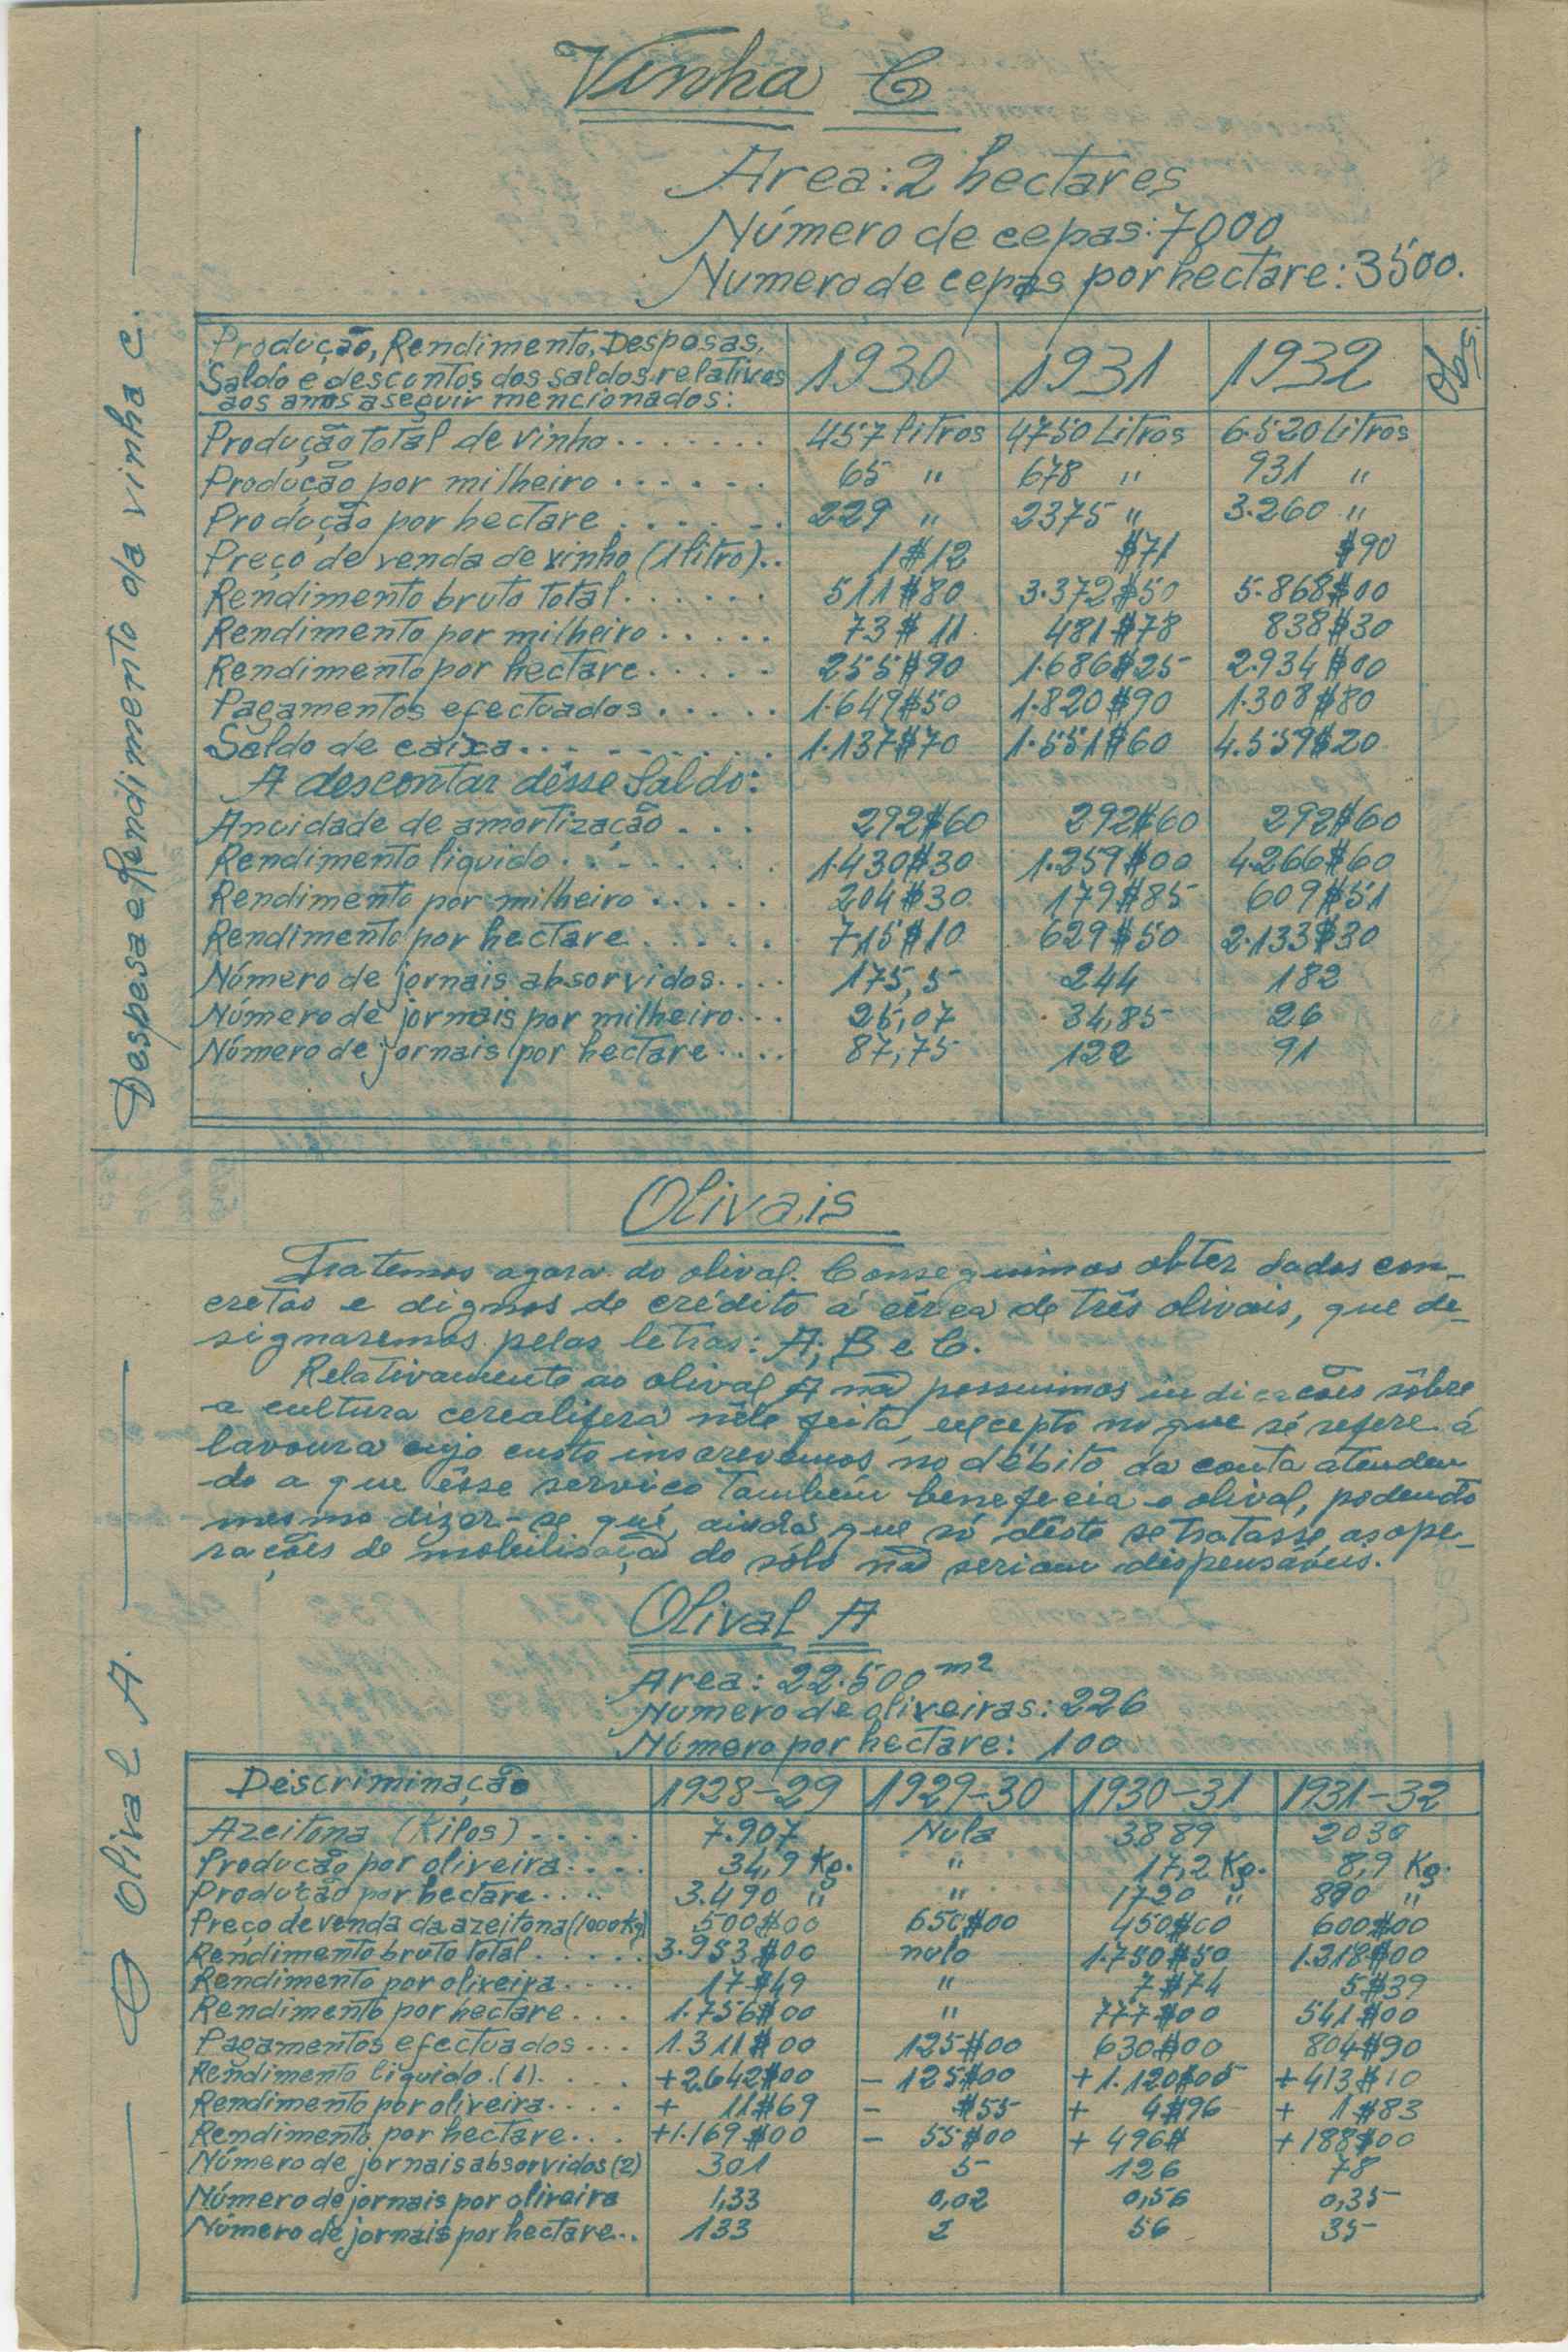 Vinha C
Area: 2 hectares
Número de cepas: 7000
Numero de cepas por hectare: 3500.
Despesa e Rendimento da vinha C.
Produção, Rendimento, Desposas, Saldo e descontos dos saldos relativos aos anos a seguir mencionados: 1930 1931 1932 Obs.
Produção total de vinho....... 457 litros 4750 Litros 6.520 Litros
Produção por milheiro...... 65 " 678 " 931 "
Produção por hectare...... 229 " 2375 " 3.260 "
Preço de venda de vinho (1 litro).. 1$12 $71 $90
Rendimento bruto total...... 511$80 3.372$50 5.868$00
Rendimento por milheiro..... 73$11 481$78 838$30
Rendimento por hectare..... 255$90 1.686$25 2.934$00
Pagamentos efectuados..... 1.649$50 1.820$90 1.308$80
Saldo de caixa.......... 1.137$70 1.551$60 4.559$20
A descontar dêsse Saldo:
Anuidade de amortização... 292$60 292$60 292$60
Rendimento liquido....... 1.430$30 1.259$00 4.266$60
Rendimento por milheiro...... 204$30 179$85 609$51
Rendimento por hectare...... 715$10 629$50 2.133$30
Número de jornais absorvidos.... 175,5 244 182
Número de jornais por milheiro... 25,07 34,85 26
Número de jornais por hectare.... 87,75 122 91
Olivais
Tratemos agora do olival. Conseguimos obter dados con-
cretos e dignos de crédito á cêrca de três olivais, que de-
signaremos pelas letras: A; B e C.
Relativamente ao olival A não possuimos indicações sôbre
a cultura cerealifera nêle feita, excepto no que se refere á
lavoura cujo custo inscrevemos no débito da conta atenden
do a que êsse serviço também beneficia o olival, podendo
mesmo dizer-se que, ainda que só dêste se tratasse, as ope-
rações de mobilisação do sólo não seriam dispensáveis.
O Olival A.
Olival A
Area: 22.500 m2
Numero de oliveiras: 226
Número por hectare: 100
Descriminação 1928-29 1929-30 1930-31 1931-32
Azeitona (Kilos)..... 7.907 Nula 3889 2030
Produção por oliveira.... 34,9 Kg. " 17,2 Kg. 8,9 Kg.
Produção por hectare.... 3.490 " " 1720 " 890 "
Preço de venda da azeitona (1000 Kg) 500$00 650$00 450$00 600$00
Rendimento bruto total...... 3.953$00 nulo 1.750$50 1.218$00
Rendimento por oliveira..... 17$49 " 7$74 5$39
Rendimento por hectare... 1.756$00 " 777$00 541$00
Pagamentos efectuados... 1.311$00 125$00 630$00 804$90
Rendimento liquido.(1)..... +2.642$00 - 125$00 +1.120$05 +413$10
Rendimento por oliveira.... + 11$69 - $55 + 4$96 + 1$83
Rendimento por hectare... +1.169$00 - 55$00 + 496$ +188$00
Número de jornais absorvidos (2) 301 5 126 78
Número de jornais por oliveira 1,33 0,02 0,56 0,35
Número de jornais por hectare... 133 2 56 35